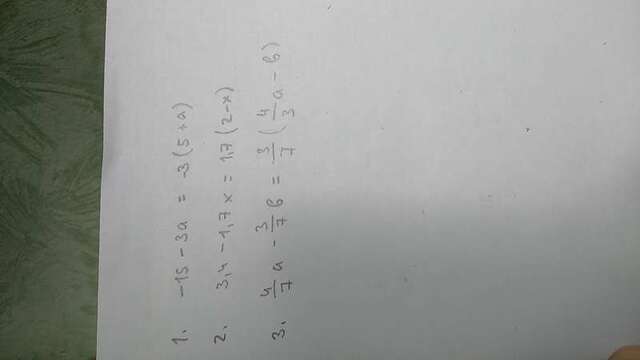 1. -15 - 3a = -3(5+a)
2. 3,4 - 1,7x = 1,7(2-x)
3. 4/7 a - 3/7 b = 3/7 (4/3 a - b)